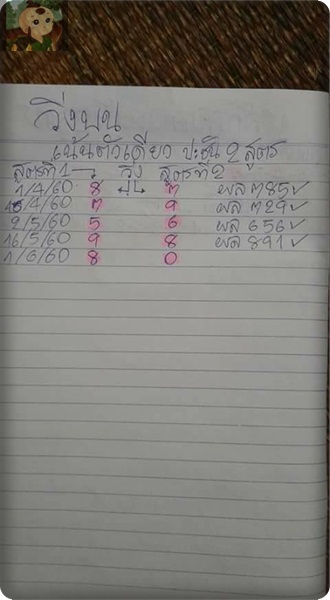 วิ่งบน
เน้นตัวเดียว ปะชัน 2 สูตร
สูตรที่ 1 วิ่งบน สูตรที่ 2
1/4/60 8 7 ผล 785 ✓
16/4/60 7 9 ผล 729 ✓
2/5/60 5 6 ผล 656 ✓
16/5/60 9 8 ผล 891 ✓
1/6/60 8 0